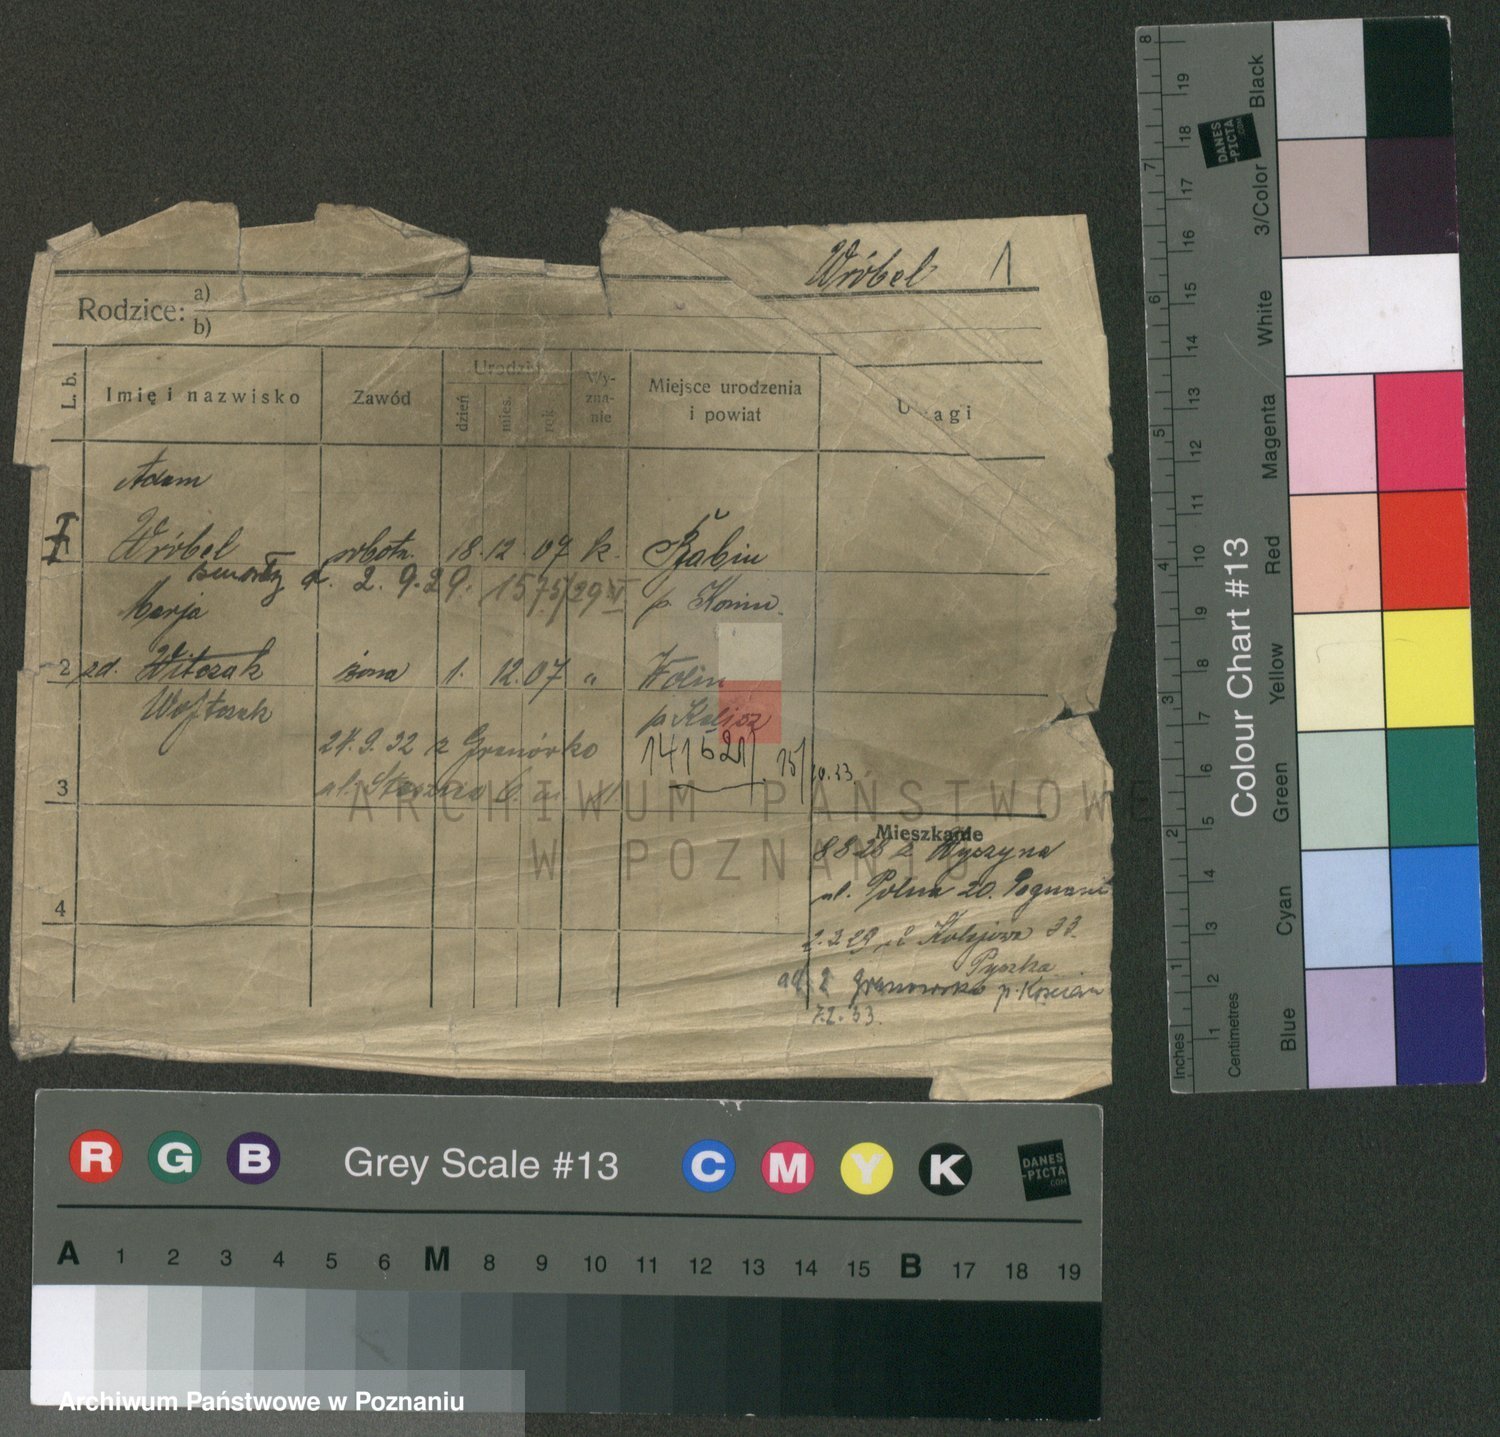 Wróbel 1
Rodzice: a)
b)
L. b.
Imię i nazwisko
Zawód
dzień
mies.
rok
Wy-
zna-
nie
Miejsce urodzenia
i powiat
Uwagi
Adam
Wróbel robotn. 18. 12. 07 k.
2. 9. 29. 1575/29
Marja
2 zd. Witczak żona 1. 12. 07 " Wolin
Wojtczak p. Kalisz
24. 9. 32 z Granówko
141621
3
Mieszkanie
8 8 28 z Wyczyna
ul. Polna 20. Poznań
4
2. 2 29 Kolejowa 33.
Granówko p. Kościan
7.2.33.
ARCHIWUM PAŃSTWOWE
W POZNANIU
8
7
6
5
4
3
2
1
Inches
19
18
17
16
15
14
13
12
11
10
9
8
7
6
5
4
3
2
1
Centimetres
DANES
-PICTA
.COM
Colour Chart #13
Black
3/Color
White
Magenta
Red
Yellow
Green
Cyan
Blue
R G B Grey Scale #13 C M Y K DANES
-PICTA
.COM
A 1 2 3 4 5 6 M 8 9 10 11 12 13 14 15 B 17 18 19
Archiwum Państwowe w Poznaniu